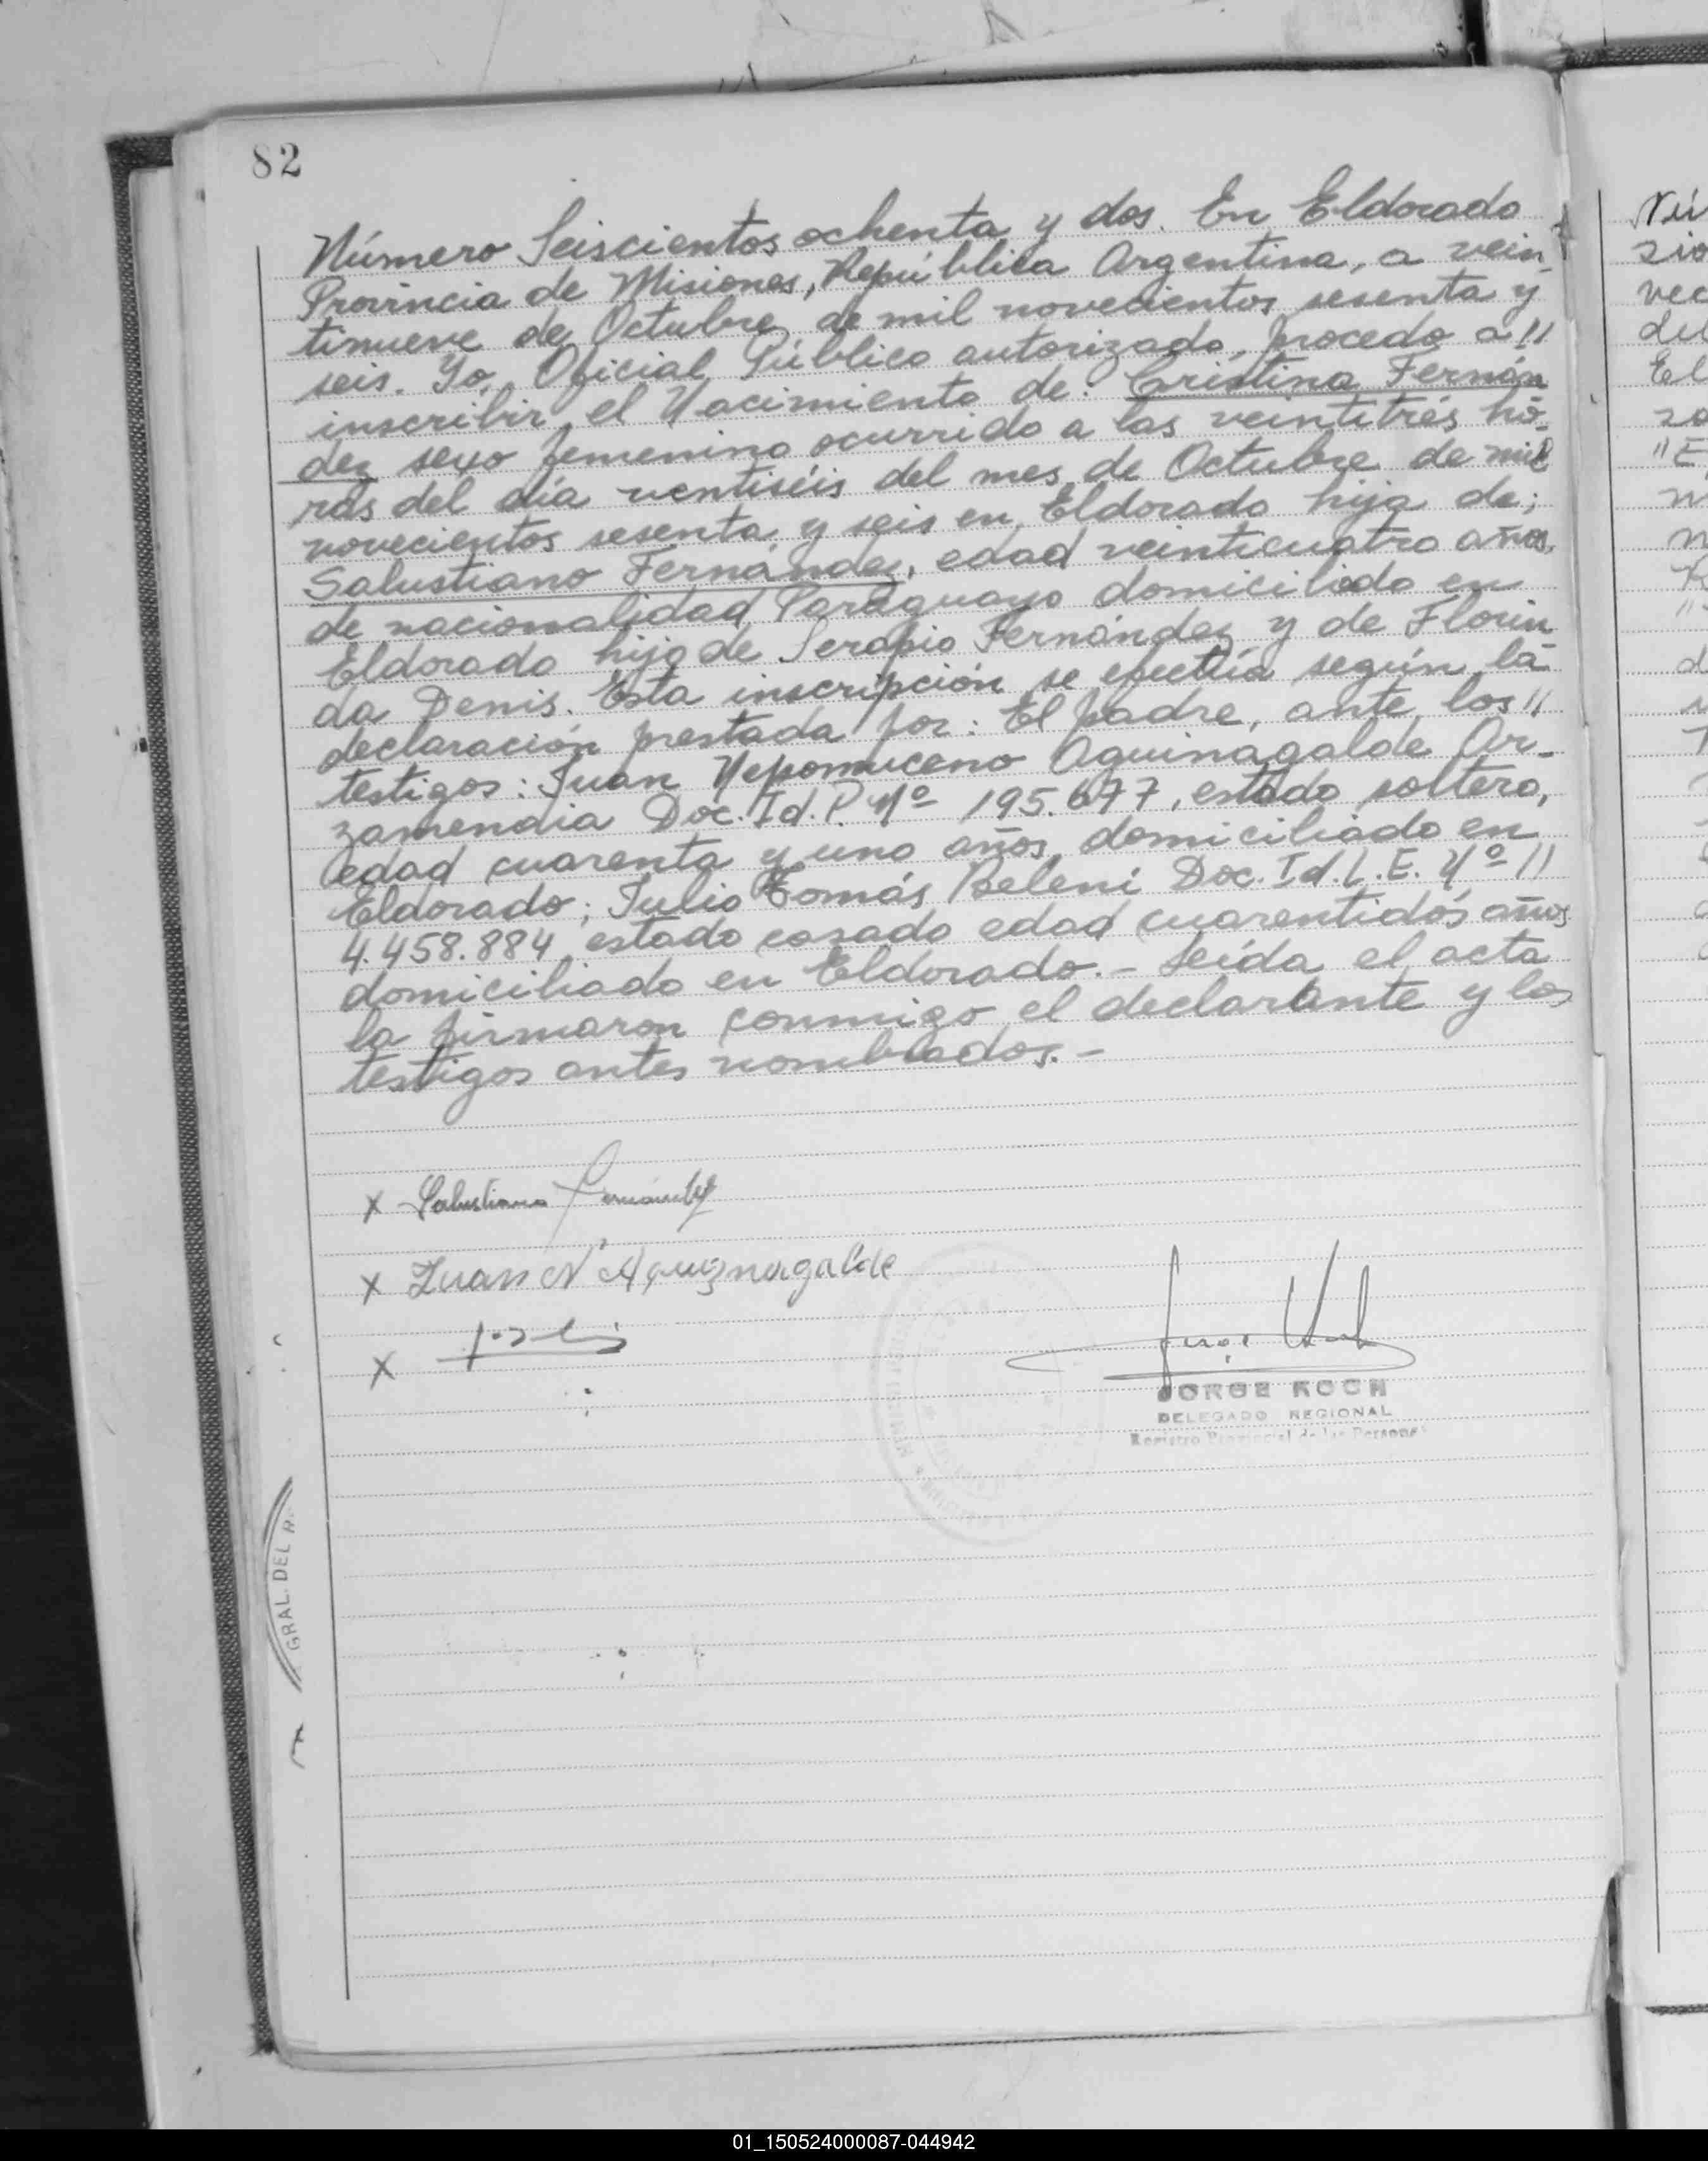 82
Número Seiscientos ochenta y dos. En Eldorado
Provincia de Misiones, República Argentina, a vein-
tinueve de Octubre de mil novecientos sesenta y
seis. Yo, Oficial Público autorizado, procedo a //
inscribir el Nacimiento de: Cristina Fernán
dez sexo femenino ocurrido a las veintitrés ho-
ras del día ventiséis del mes de Octubre de mil
novecientos sesenta y seis en Eldorado hija de;
Salustiano Fernández, edad veinticuatro años,
de nacionalidad Paraguayo domiciliado en
Eldorado hijo de Serapio Fernández y de Florin
da Denis. Esta inscripción se efectúa según la
declaración prestada por: El padre, ante los //
testigos: Juan Nepomuceno Aguinagalde Ar-
zamendia Doc. Id. P. Nº 195.677, estado soltero,
edad cuarenta y uno años, domiciliado en
Eldorado; Julio Tomás Beleni Doc. Id. L. E. Nº //
4.458.884 estado casado edad cuarentidós años
domiciliado en Eldorado. - Leída el acta
la firmaron conmigo el declarante y los
testigos antes nombrados. -
x Salustiano Fernández
x Juan N Aguinagalde
x
JORGE KOCH
DELEGADO REGIONAL
Registro Provincial de las Personas
GRAL. DEL R.
Nú
zio
vec
El
"E
01_150524000087-044942